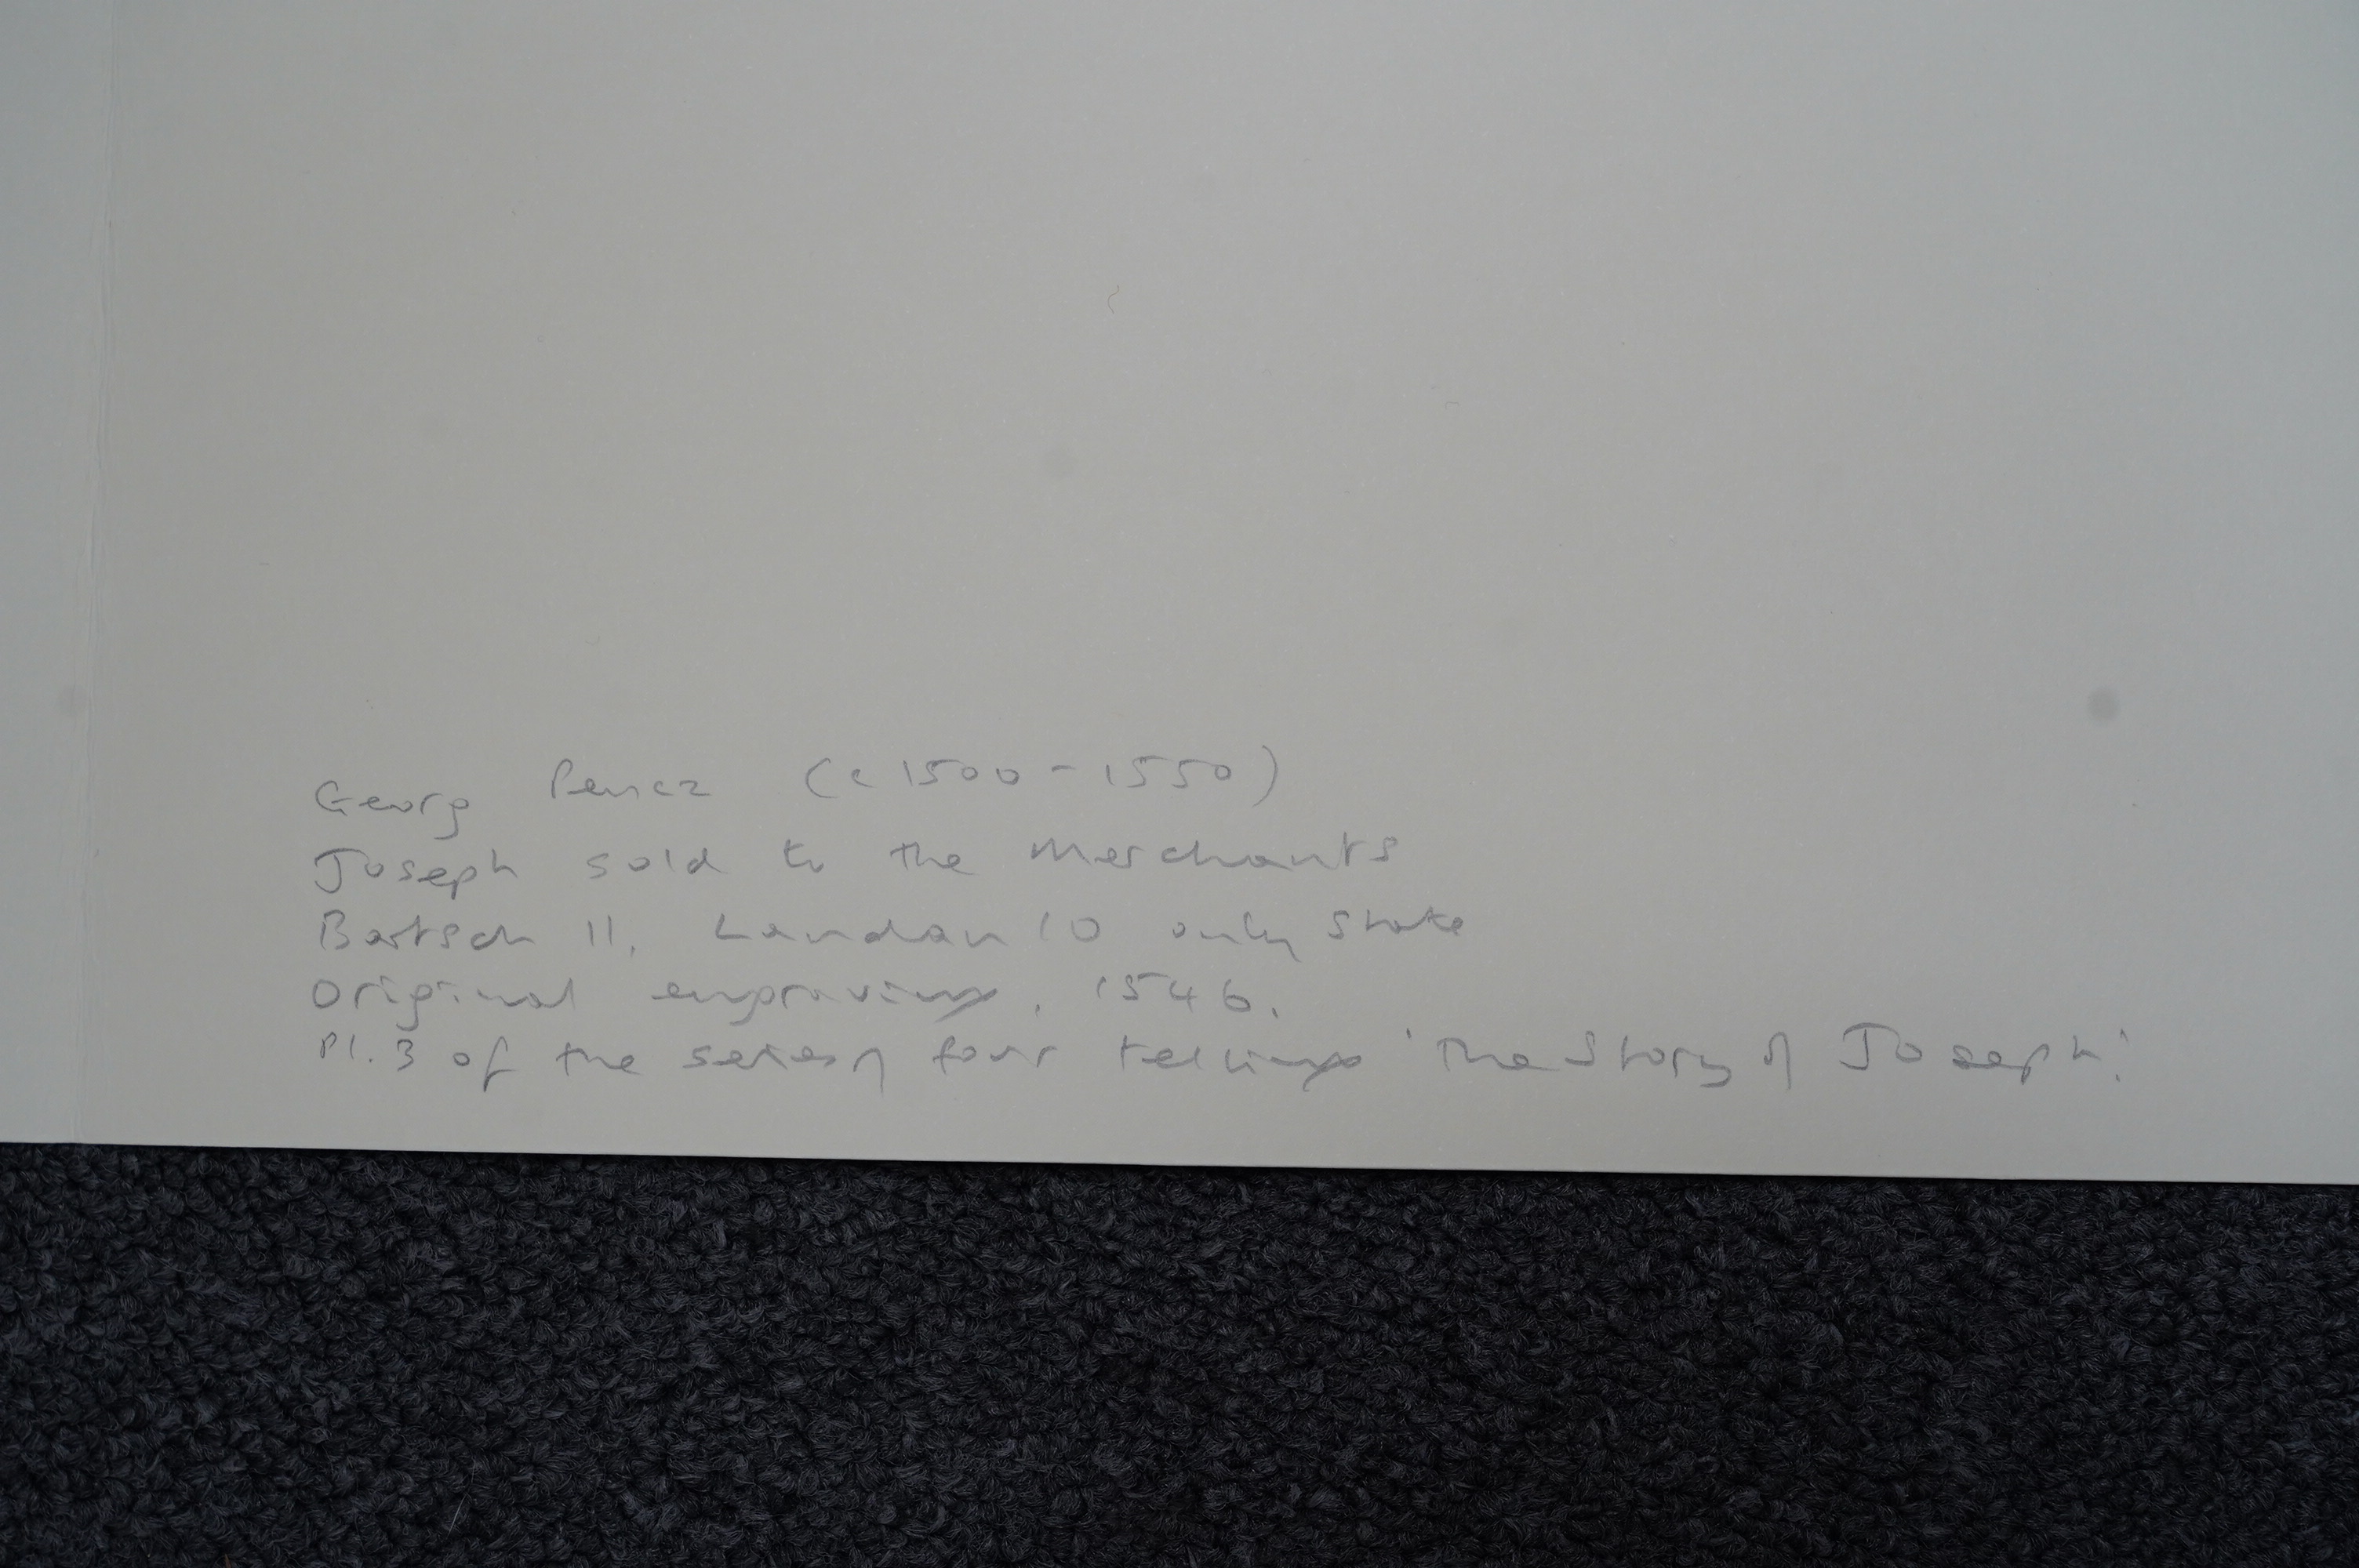 Georg Pencz (c 1500 - 1550)
Joseph sold to the Merchants
Bartsch 11, Landau 10 only state
Original engraving, 1546.
Pl. 3 of the series of four telling 'The Story of Joseph'.